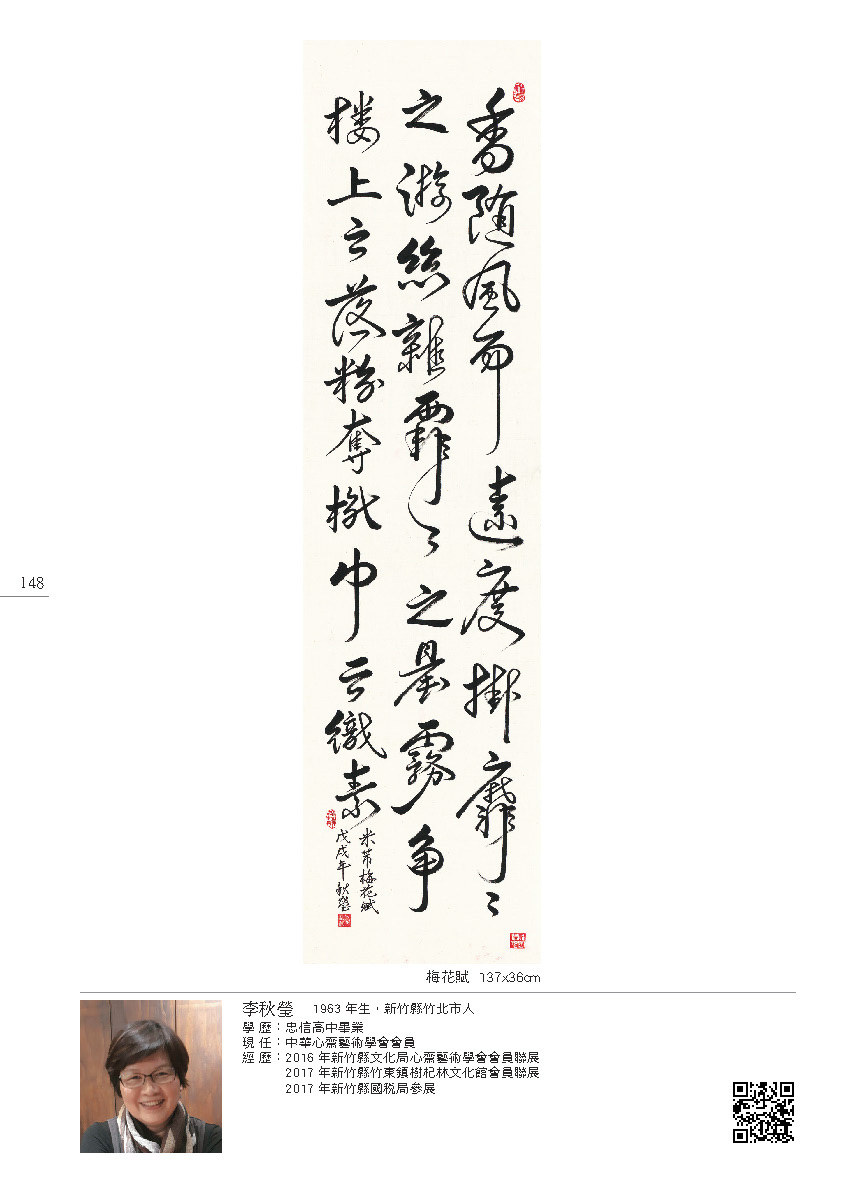 香随風而遠度掛靡々
之游絲雜霏々之晨霧争
楼上之落粉奪機中之織素
米芾梅花賦
戊戌年秋瑩
148
梅花賦 137x36cm
李秋瑩 1963 年生，新竹縣竹北市人
學 歷：忠信高中畢業
現 任：中華心齋藝術學會會員
經 歷：2016 年新竹縣文化局心齋藝術學會會員聯展
2017 年新竹縣竹東鎮樹杞林文化館會員聯展
2017 年新竹縣國稅局參展